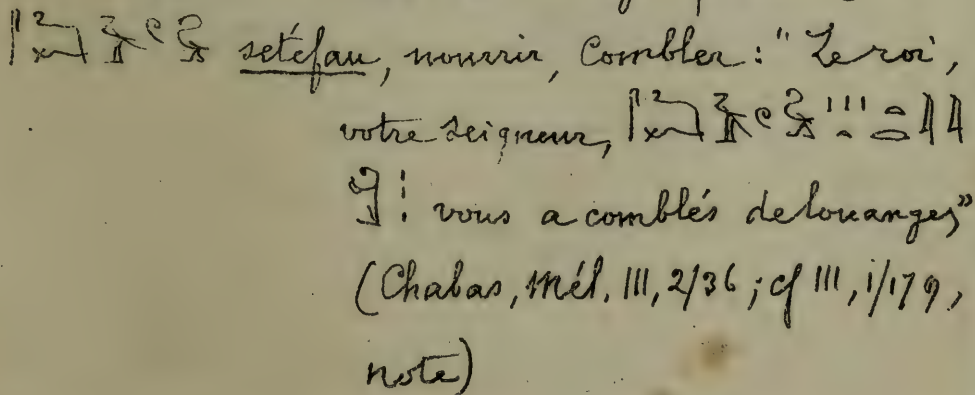 setéfau, nourrir, combler: "Le roi,
votre seigneur,
vous a comblés de louanges"
(Chabas, Mél. III, 2/36; cf III, 1/179,
note)